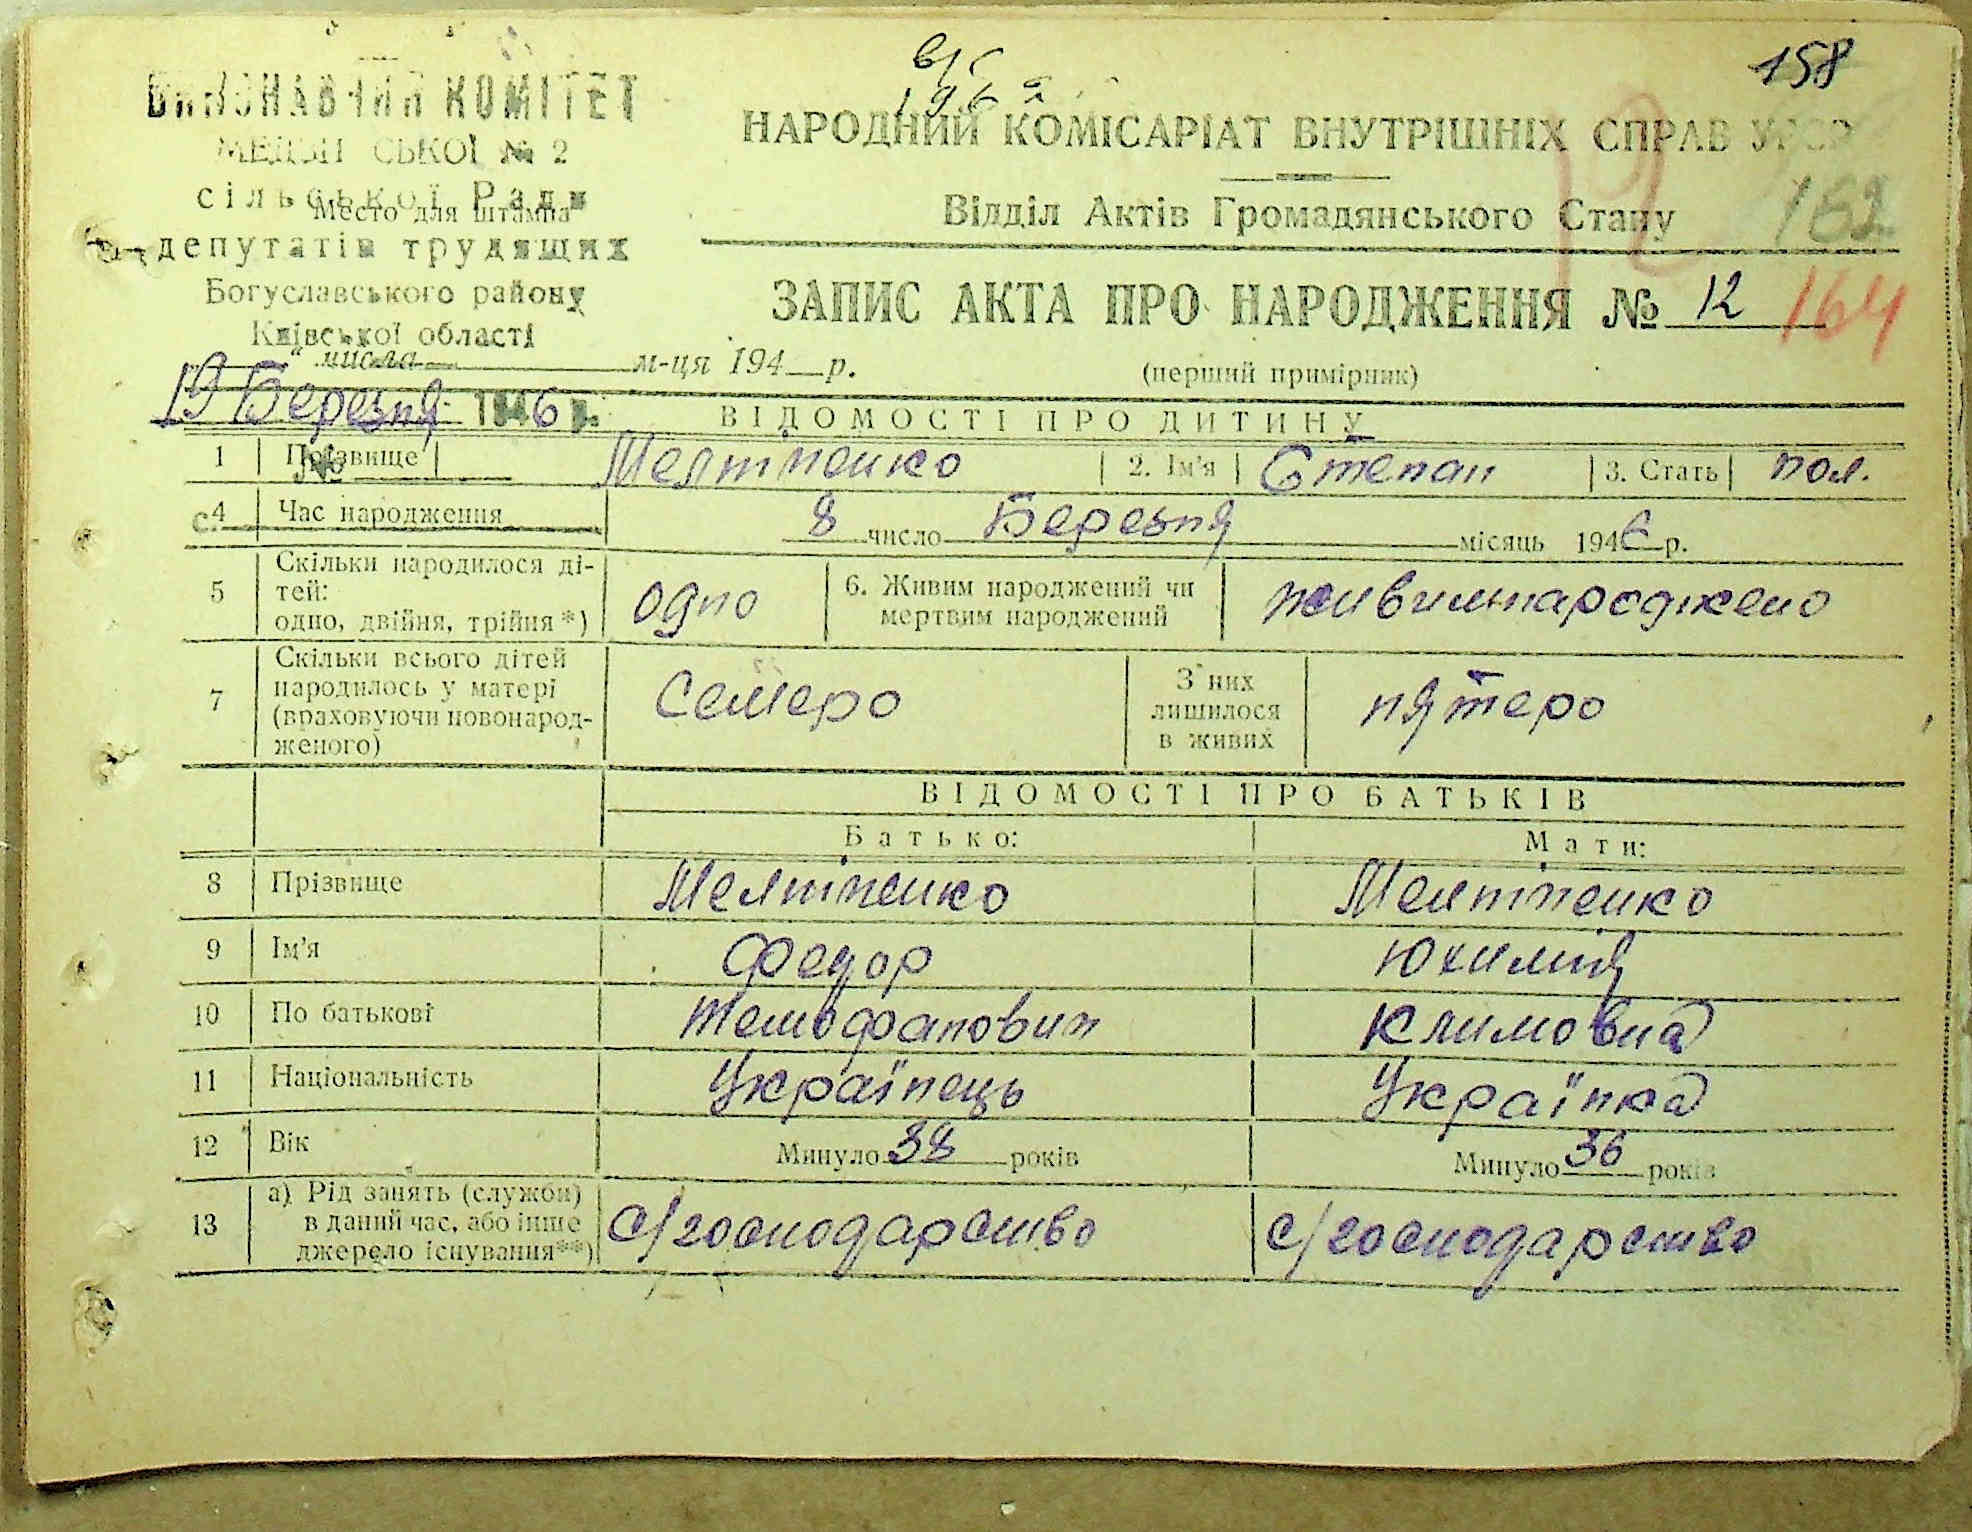 158
ВИКОНАВЧИЙ КОМІТЕТ
№ 2
сільської Ради
Место для штампа
депутатів трудящих
Богуславського району
Київської області
НАРОДНИЙ КОМІСАРІАТ ВНУТРІШНІХ СПРАВ УРСР
Відділ Актів Громадянського Стану
162
ЗАПИС АКТА ПРО НАРОДЖЕННЯ № 12
164
(перший примірник)
" числа м-ця 194 р.
19 Березня 1946 р.
№
с.
ВІДОМОСТІ ПРО ДИТИНУ
1 Прізвище Мелтпенко 2. Ім'я Степан 3. Стать пол.
4 Час народження 8 число Березня місяць 1946 р.
5 Скільки народилося ді-
тей:
одно, двійня, трійня *) одно
6. Живим народжений чи
мертвим народжений живимнароджено
7 Скільки всього дітей
народилось у матері
(враховуючи новонарод-
женого) Семеро
З них
лишилося
в живих пятеро
ВІДОМОСТІ ПРО БАТЬКІВ
Батько: Мати:
8 Прізвище Мелтпенко Мелтпенко
9 Ім'я Федор Юхимія
10 По батькові Климовна
11 Національність Українець Українка
12 Вік Минуло 38 років Минуло 36 років
13 а) Рід занять (служби)
в даний час, або інше
джерело існування**) с/господарство с/господарство